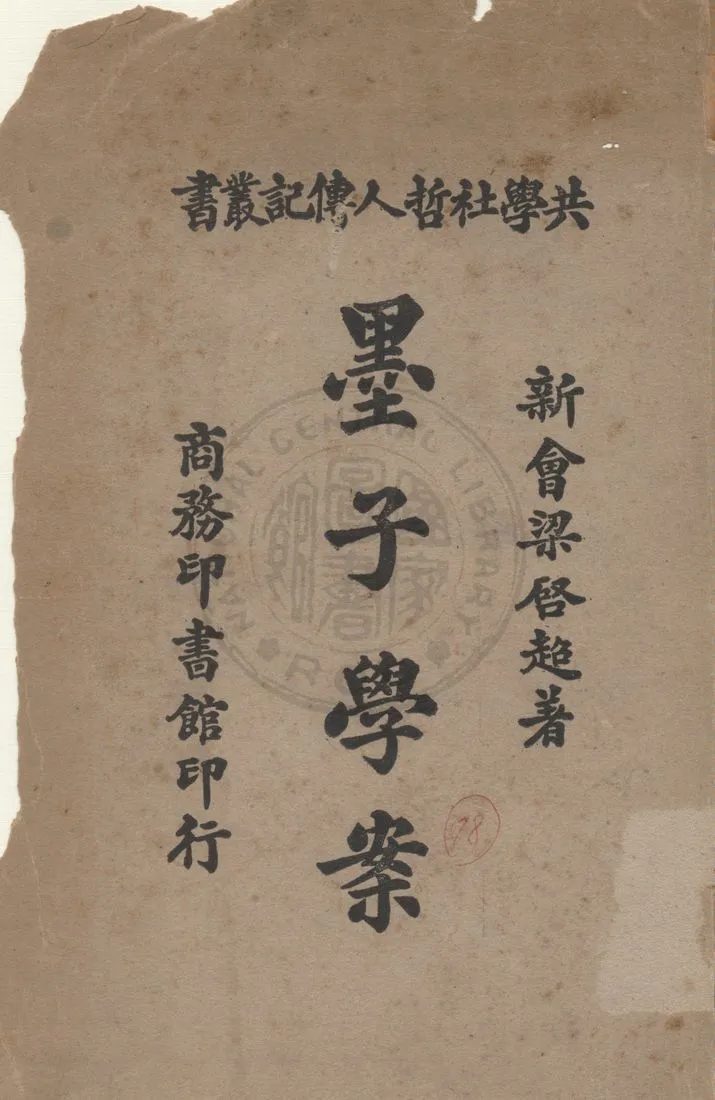 共學社哲人傳記叢書
新會梁啓超著
墨子學案
商務印書館印行
NATIONAL CENTRAL LIBRARY
78